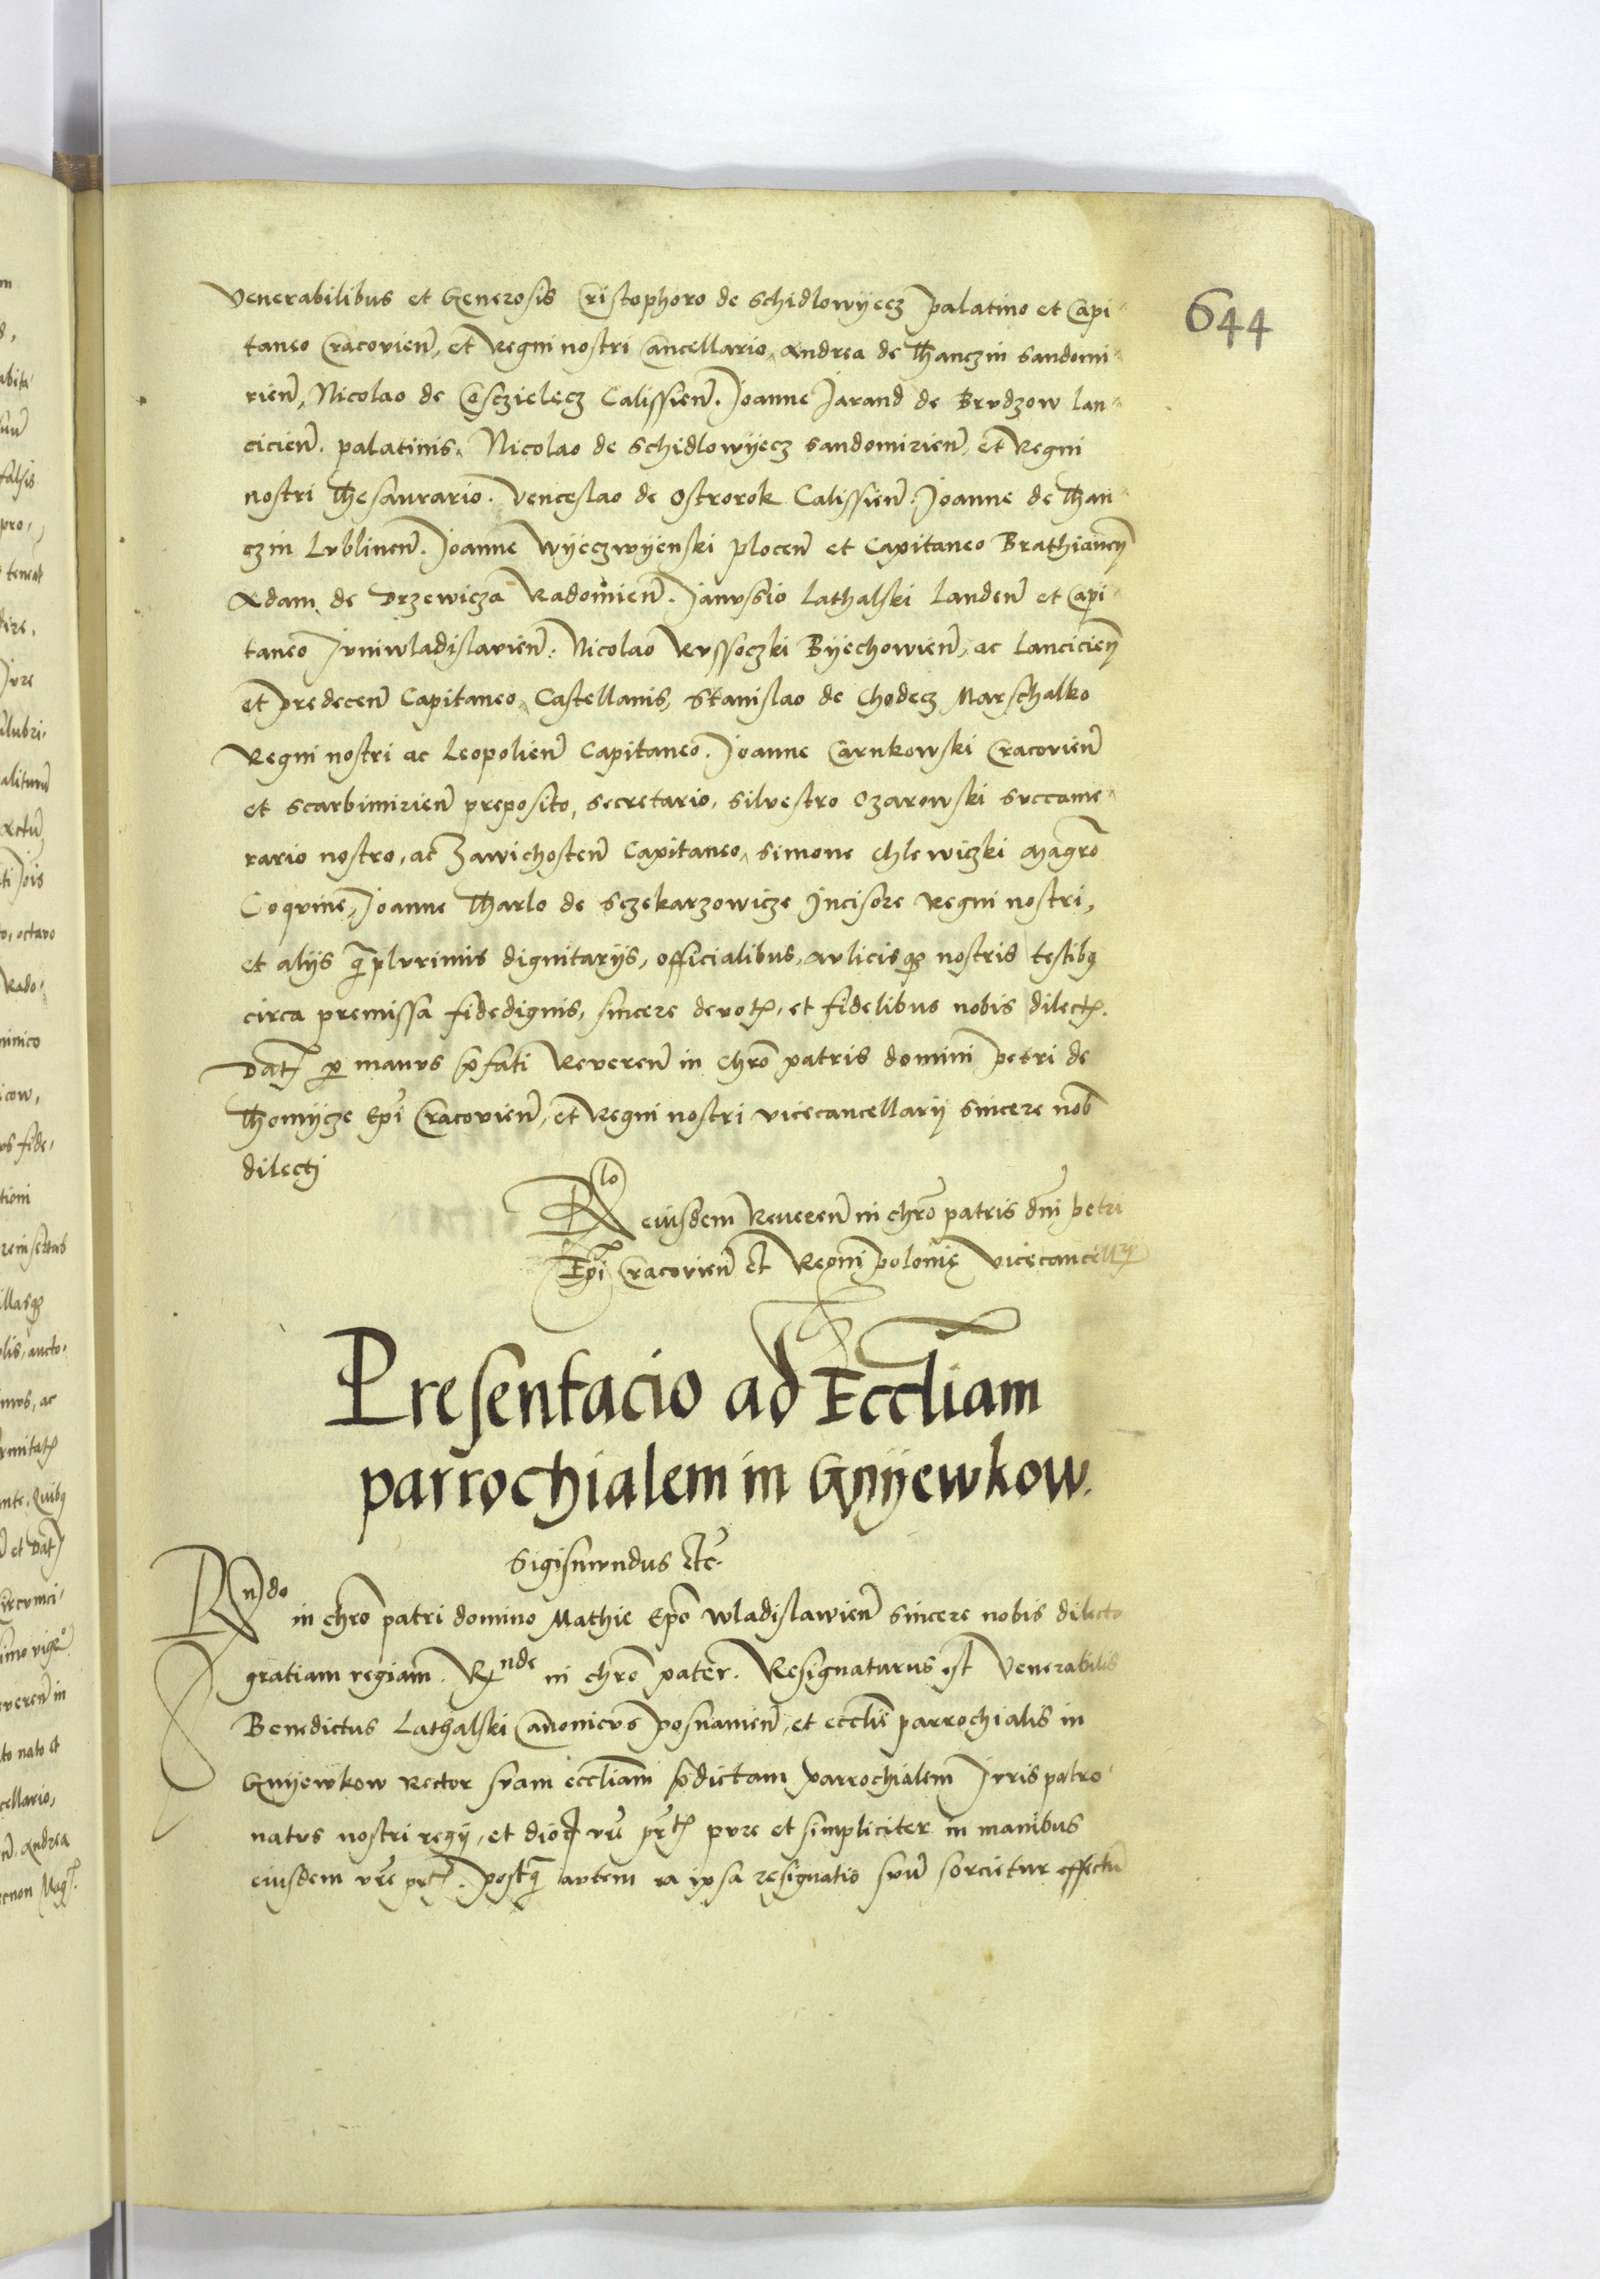 644
Venerabilibus et Generosis Cristophoro de Schidlowyecz palatino et Capi-
taneo Cracovien, et Regni nostri Cancellario, Andrea de Thanczin Sandomi-
rien, Nicolao de Cosczielecz Calissien. Joanne Jarand de Brudzow Lan-
cicien. palatinis. Nicolao de Schidlowyecz Sandomirien, et Regni
nostri Thesaurario. Venceslao de Ostrorok Calissien. Joanne de Than-
czin Lublinen. Joanne Wyeczwyenski plocen et Capitaneo Brathianen
Adam de Drzewicza Radomien. Janussio Lathalski Landen et Capi-
taneo Juniwladislavien. Nicolao Russoczki Byechowien, ac Lancicien
et predecen Capitaneo, Castellanis, Stanislao de Chodecz Marschalko
Regni nostri ac Leopolien Capitaneo. Joanne Carnkowski Cracovien
et Scarbimirien preposito, secretario, Silvestro Ozarowski succame-
rario nostro, ac Zawichosten Capitaneo, Simone Chlewiczki magro
Coquine, Joanne Tharlo de Sczekarzowicze Incisore Regni nostri,
et alijs qplurimis dignitarijs, officialibus, aulicisq nostris testibq
circa premissa fidedignis, sincere devot, et fidelibus nobis dilect.
Dat p manus pfati Reveren in chro patris domini petri de
Thomycze Epi Cracovien, et Regni nostri vicecancellarij sincere nob
dilecti
Rlo eiusdem Reveren in chro patris dni petri
Epi Cracovien et Regni polonie vicecancellrij
Presentacio ad Eccliam
parrochialem in Gnyewkow.
Sigismundus etc.
Rndo in chro patri domino Mathie Epo Wladislawien sincere nobis dilecto
gratiam regiam. Rnde in chro pater. Resignaturus est Venerabilis
Benedictus Lathalski Canonicus posnanien, et ecclie parrochialis in
Gnyewkow Rector suam eccliam pdictam parrochialem Juris patro-
natus nostri regij, et dioc vre prt pure et simpliciter in manibus
eiusdem vre prt. postq autem ea ipsa resignatio suu sorcietur effectu